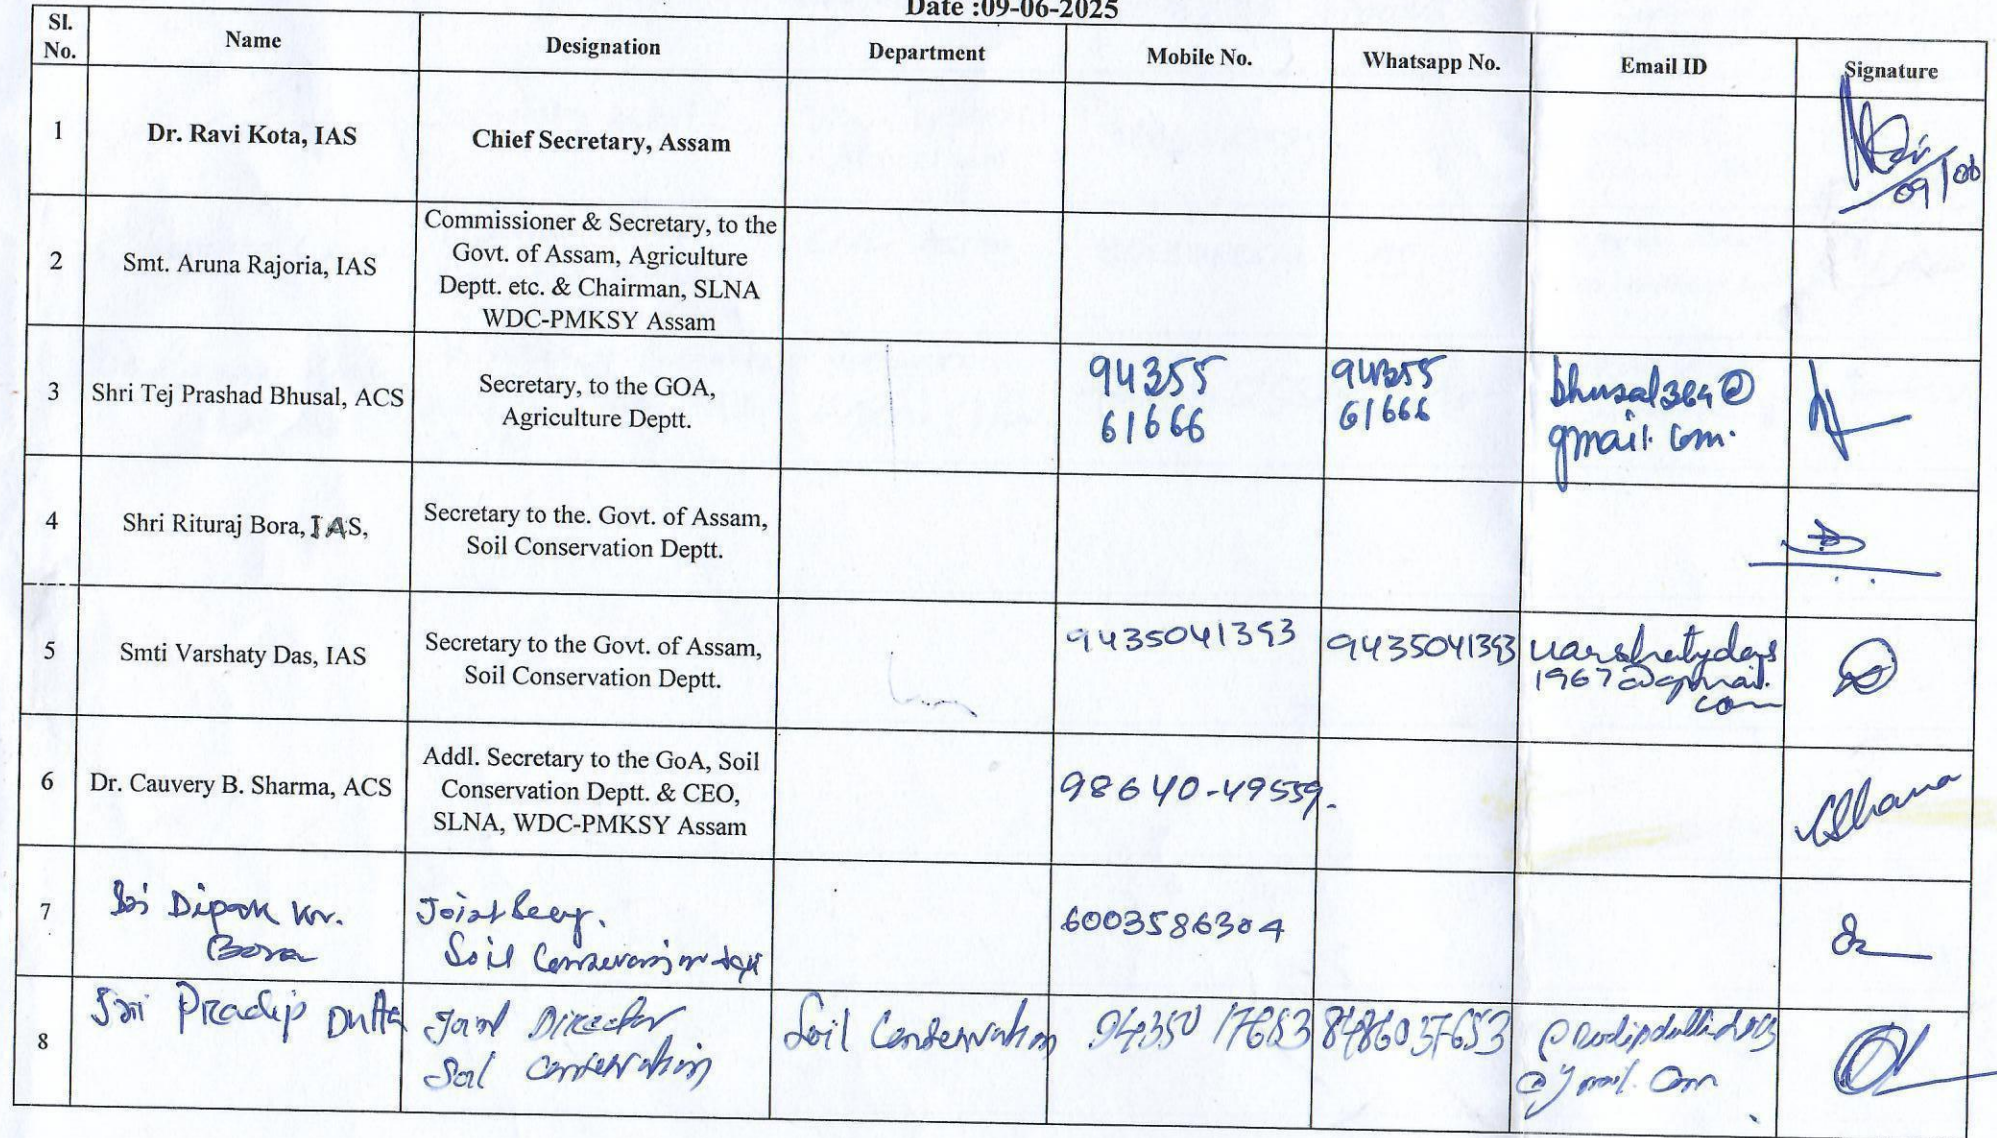 Date :09-06-2025
Sl. No. Name Designation Department Mobile No. Whatsapp No. Email ID Signature
1 Dr. Ravi Kota, IAS Chief Secretary, Assam
09/06
2 Smt. Aruna Rajoria, IAS Commissioner & Secretary, to the
Govt. of Assam, Agriculture
Deptt. etc. & Chairman, SLNA
WDC-PMKSY Assam
3 Shri Tej Prashad Bhusal, ACS Secretary, to the GOA,
Agriculture Deptt.
94355
61666
94355
61666
bhusal364@
gmail.com.
4 Shri Rituraj Bora, IAS, Secretary to the. Govt. of Assam,
Soil Conservation Deptt.
5 Smti Varshaty Das, IAS Secretary to the Govt. of Assam,
Soil Conservation Deptt.
9435041393 9435041393 varshatydas
1967@gmail.
com
6 Dr. Cauvery B. Sharma, ACS Addl. Secretary to the GoA, Soil
Conservation Deptt. & CEO,
SLNA, WDC-PMKSY Assam
98640-49559.
7 Sri Dipak Kr.
Bora
Joint Secy.
Soil Conservation deptt
6003586304
8 Shri Pradip Dutta Joint Director
Soil Conservation
Soil Conservation 8486037653
@gmail.com